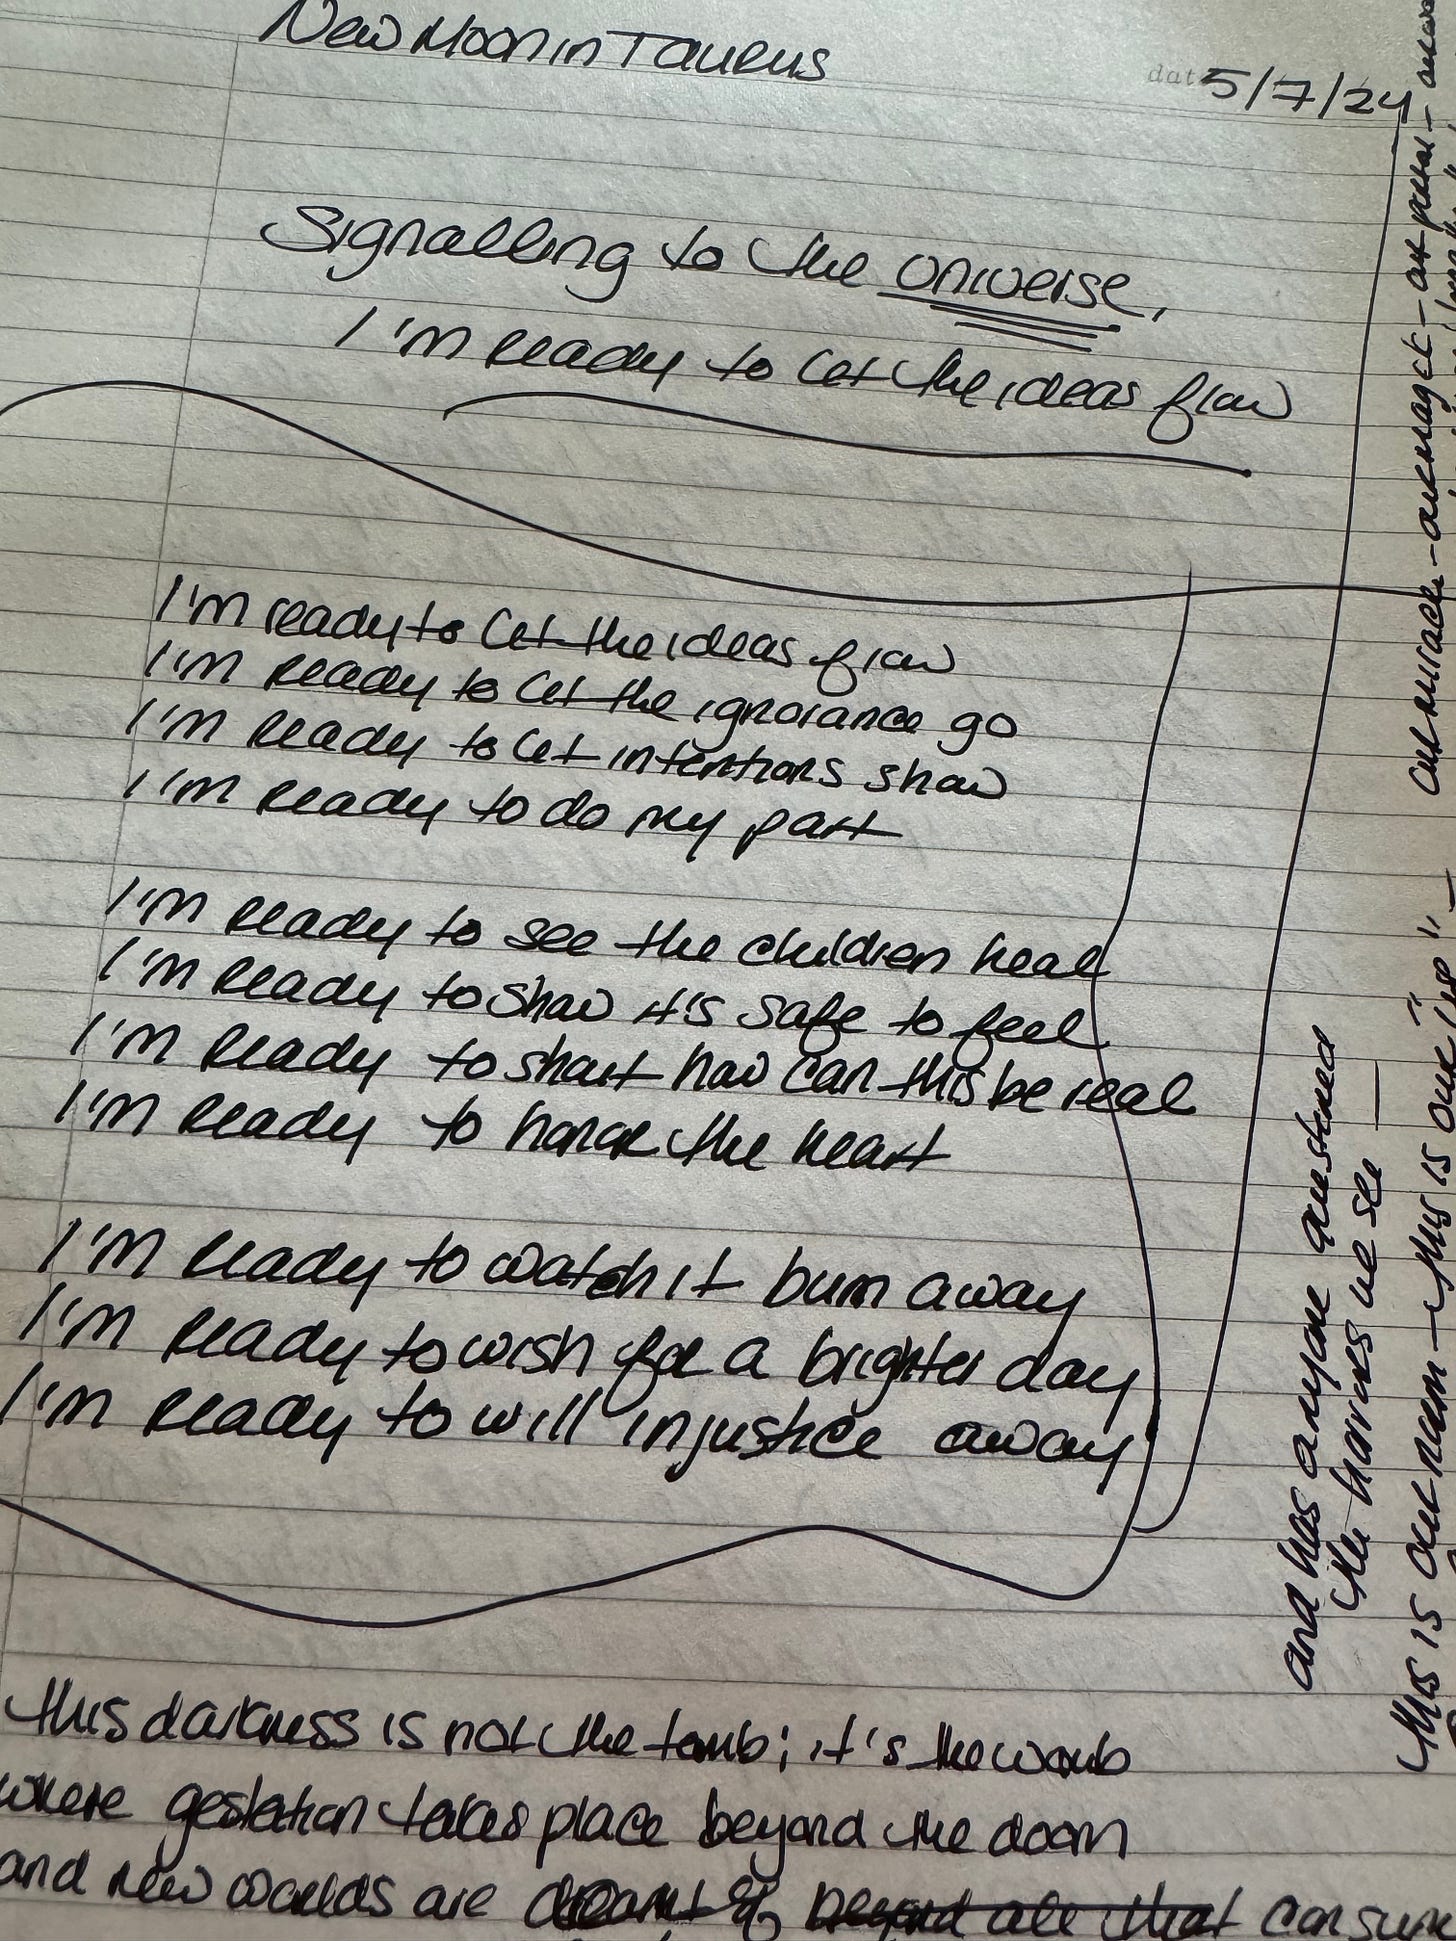 New Moon in Taurus
date 5/7/24
Signalling to the universe,
I'm ready to let the ideas flow
I'm ready to let the ideas flow
I'm ready to let the ignorance go
I'm ready to let intentions show
I'm ready to do my part
I'm ready to see the children heal
I'm ready to show it's safe to feel
I'm ready to shout how can this be real
I'm ready to honor the heart
I'm ready to watch it burn away
I'm ready to wish for a brighter day
I'm ready to will injustice away
this darkness is not the tomb; it's the womb
where gestation takes place beyond the doom
and new worlds are dreamt of beyond all that consume
and has anyone questioned
the horrors we see
this is our this is our